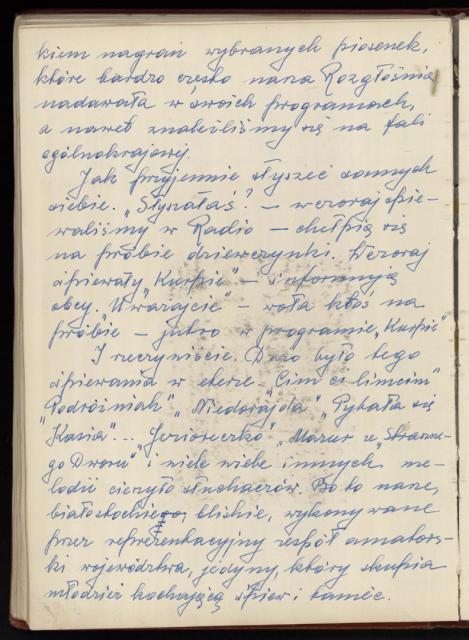 kiem nagrań wybranych piosenek,
które bardzo często nasza Rozgłośnia
nadawała w swoich programach,
a nawet znaleźliśmy się na fali
ogólnokrajowej.
Jak przyjemnie słyszeć samych
siebie. „Słyszałaś? – wczoraj śpie-
waliśmy w Radio – chełpią się
na próbie dziewczynki. Wczoraj
śpiewały „Kurpie" – informują
obcy. „Uważajcie" – woła ktoś na
próbie – jutro w programie „Kurpie"
I rzeczywiście. Dużo było tego
śpiewania w eterze. „Cim ci limcim"
"Podróżniak", „Niedorajda" „Pytała się
Kasia"... „Jezioreczko" „Mazur ze „Straszne-
go Dworu" i wiele wiele innych me-
lodii cieszyło słuchaczów. Bo to nasze,
białostockie, bliskie, wykonywane
przez reprezentacyjny zespół amators-
ki województwa, jedyny, który skupia
młodzież kochającą śpiew i taniec.